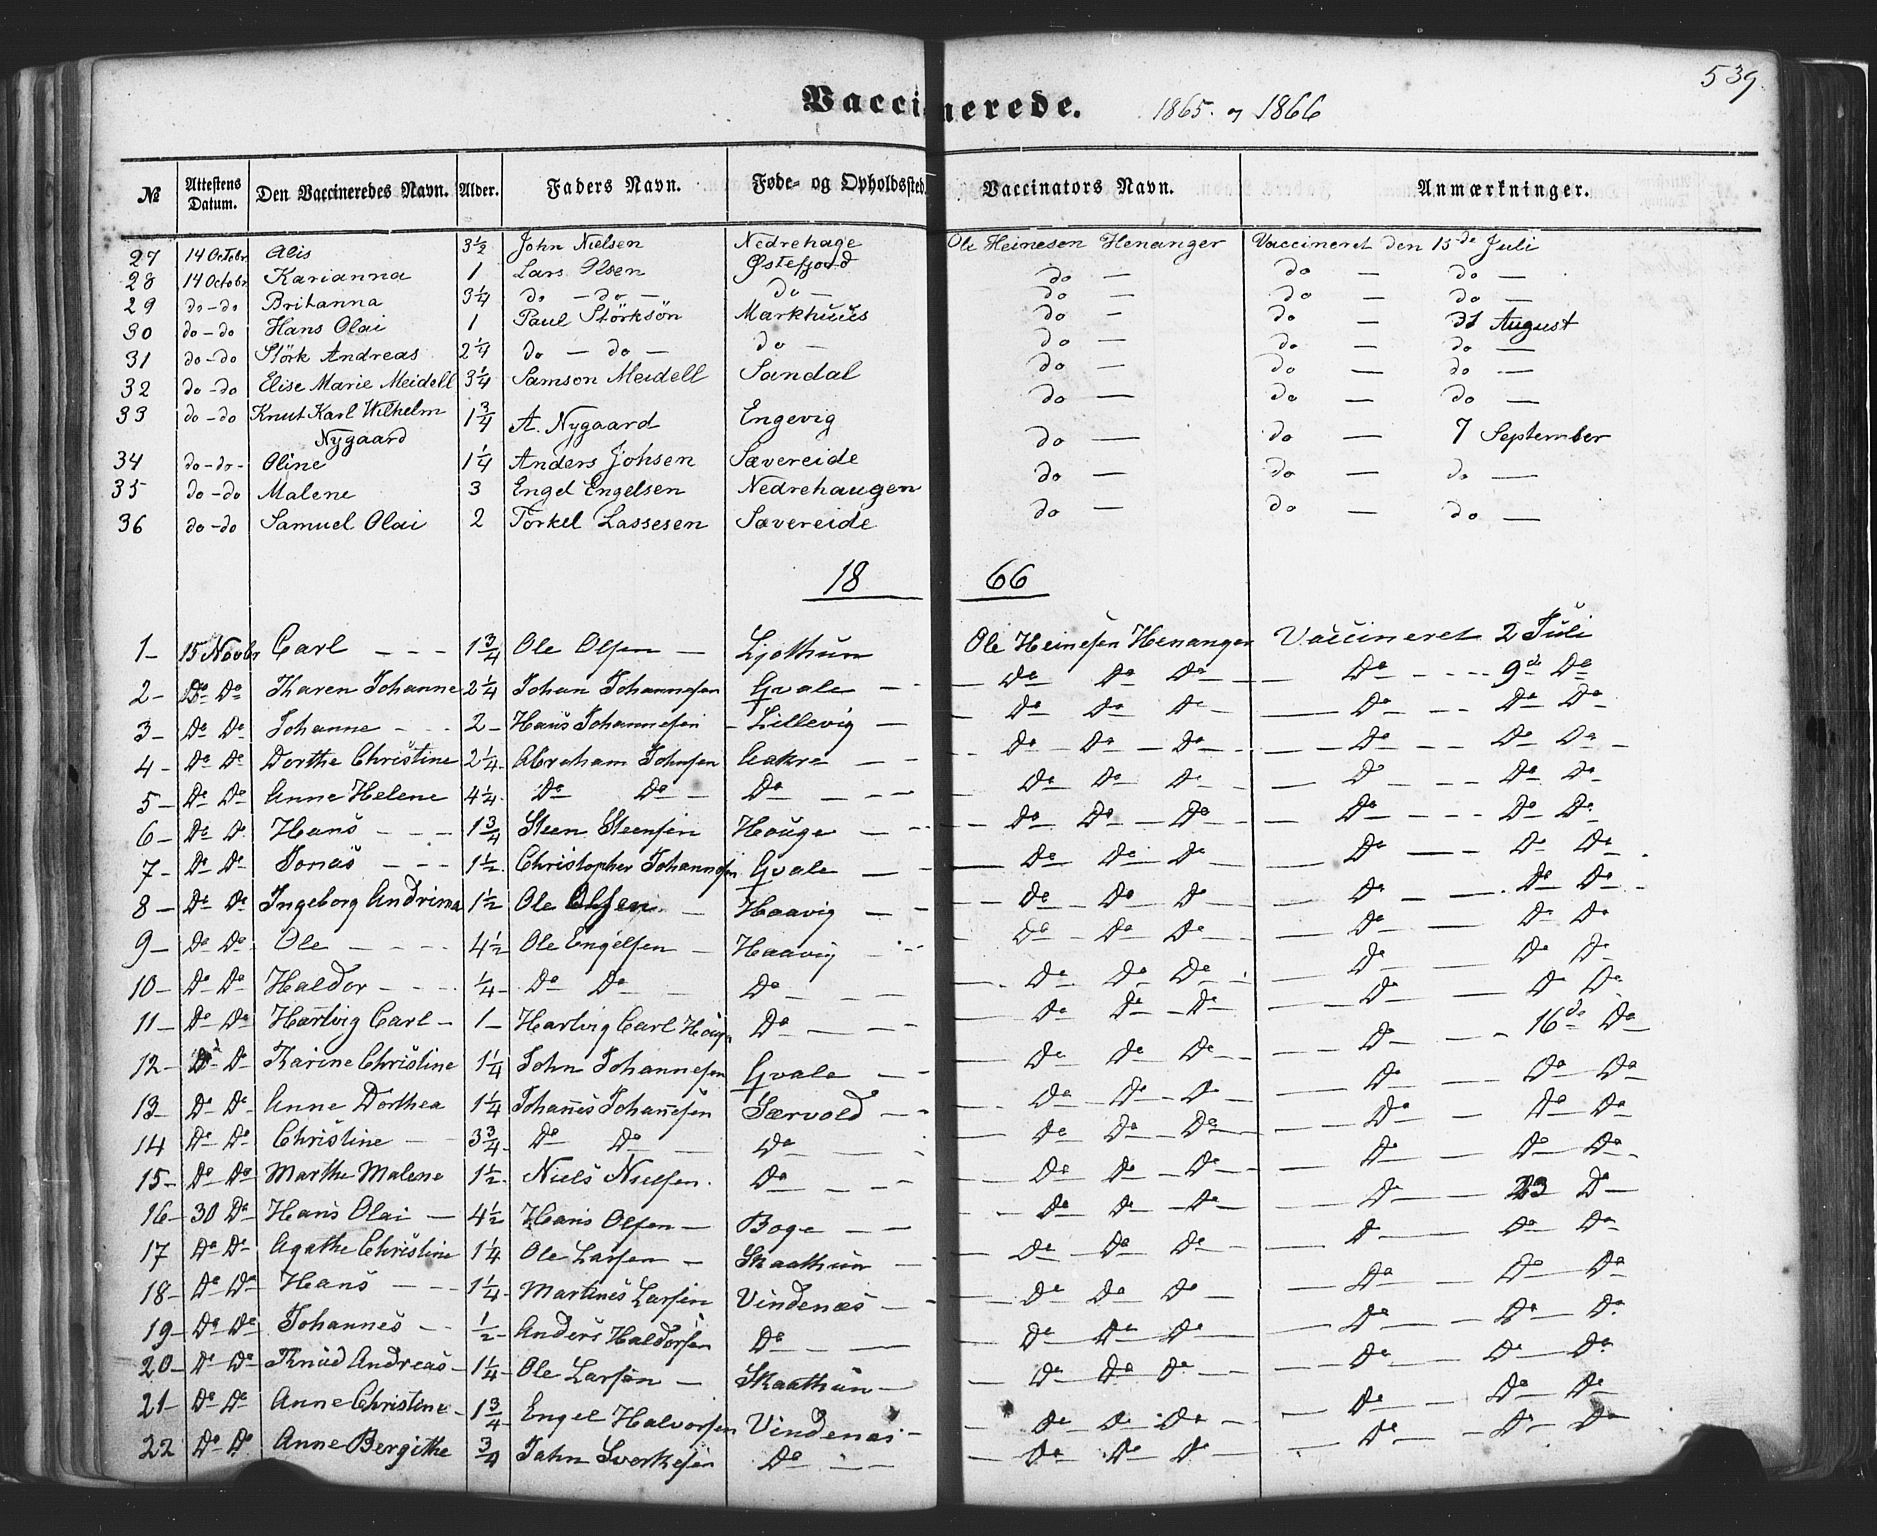 539
Vaccinerede. 1865. og 1866
№ Attestens Datum. Den Vaccineredes Navn. Alder. Faders Navn. Føde- og Opholdssted. Vaccinators Navn. Anmærkninger.
27 14 Octobr Alis 3½ John Nielsen Nedrehage Ole Heinesen Henanger Vaccineret den 15de Juli
28 14 Octobr Karianna 1 Lars Olsen Østefjord do — do — do —
29 do - do Britanna 3¼ do — do — do — do — do — do —
30 do - do Hans Olai 1 Paul Störksön Markhuus do — do — 31 August
31 do - do Störk Andreas 2¼ do — do — do — do — do — do —
32 do - do Elise Marie Meidell 3¼ Samson Meidell Sandal do — do — do —
33 do - do Knut Karl Wilhelm Nygaard 1¾ A. Nygaard Engevig do — do — do —
34 do - do - Oline 1¼ Anders Johsen Sævereide do — do — 7 September
35 do - do Malene 3 Engel Engelsen Nedrehaugen do — do — do —
36 do - do Samuel Olai 2 Torkel Lassesen Sævereide do — do — do —
18 66
1 - 15 Novbr Carl - - - 1¾ Ole Olsen — Ljothun Ole Heinesen Henanger Vaccineret 2 Juli
2 - Do Do Karen Johanne 2¼ Johan Johannesen Qvale - - — Do Do Do - — Do - - - - 9d Do
3 - Do Do Johanne - - - 2 - Hans Johannesen - Lillevig — — Do Do Do — — Do — - - Do Do
4 - Do Do Dorthe Christine 2¼ Abraham Johnsen Aakre - - - - Do - Do — Do - — - Do - - - Do Do -
5 - Do Do Anne Helene 4¼ Do Do - Do - - - — Do Do Do - — Do - - - Do Do
6 - Do Do Hans - - - 1¾ Steen Steensen Houge — - — - Do Do — Do - — Do - - - - Do Do
7 - Do Do Jonas - - - 1½ Christopher Johannesen Qvale — - — Do Do Do — Do — — Do Do
8 - Do Do Ingeborg Andrina 1½ Ole Olsen — Haavig — - — - Do - Do Do — — Do — — Do Do -
9 - Do Do Ole - - - - 4½ Ole Engelsen - Haavig - - — Do - Do Do — — Do — Do Do
10 - Do Do Haldor - - - ¼ - Do Do - Do - - - — - Do Do Do - — Do — Do Do
11 - Do Do Hartvig Carl - 1 - Hartvig Carl Do - - - — Do Do - Do — Do — Do Do
12 - Do Do Karine Christine 1¼ John Johannesen Qvale - - — Do Do Do — — Do — - 16de Do
13 - Do Do Anne Dorthea 1¼ Johañes Johañesen Særvold - - — Do Do — Do - — Do — Do Do
14 Do Do Christine - - 3¾ Do Do - Do - - - — Do Do — Do — — Do — Do Do
15 - Do Do Marthe Malene 1½ Niels Nielsen. Do - - - — Do Do — Do - — Do — Do Do -
16 - 30 Do Hans Olai — 4½ Hans Olsen - Boge — - - - Do - Do - Do — — Do — — 23 Do —
17 Do Do Agathe Christine 1¼ Ole Larsen - Skaathun — — Do — Do Do — — Do — Do Do
18 - Do Do Hans - - - 1¼ Martines Larsen Vindenæs - - — Do Do Do — — Do — Do Do
19 - Do Do Johannes - - ½ - Anders Haldorsen Do - - — — Do Do Do — — Do — Do — Do
20 - Do Do Knud Andreas - 1¼ Ole Larsen - Skaathun — — Do - Do — Do — — Do — Do — Do
21 - Do Do Anne Christine - 1¾ Engel Halvorsen Vindenæs - — Do Do Do — — Do — Do Do
22 Do Do Anne Bergithe ¾ Jahn Sverkesen Do - - — Do Do Do — — Do — Do — Do